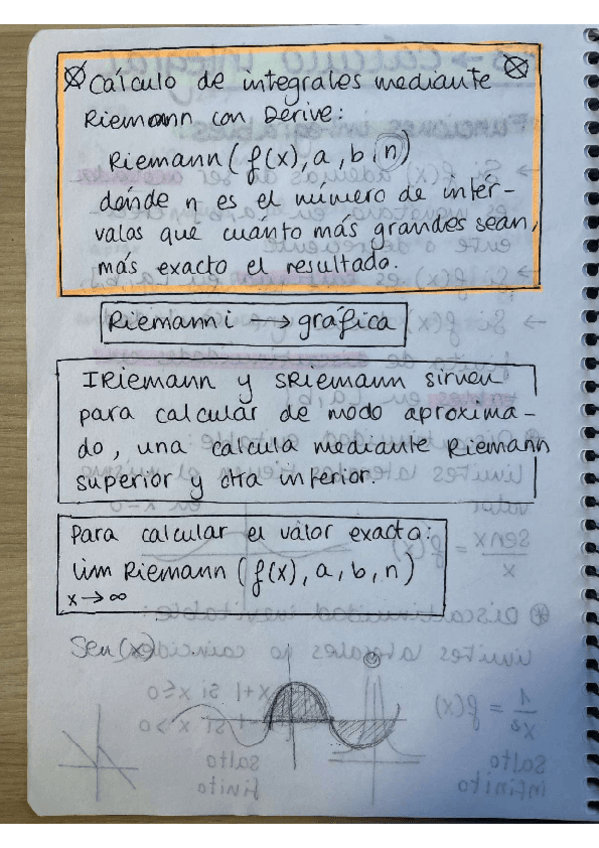 Cálculo de integrales mediante
Riemann con Derive:
Riemann (f(x), a, b, n)
dónde n es el número de inter-
valos que cuánto más grandes sean,
más exacto el resultado.
Riemanni → gráfica
IRiemann y SRiemann sirven
para calcular de modo aproxima-
do, una calcula mediante Riemann
superior y otra inferior.
Para calcular el valor exacto:
lim Riemann (f(x), a, b, n)
x → ∞
Sen(x)